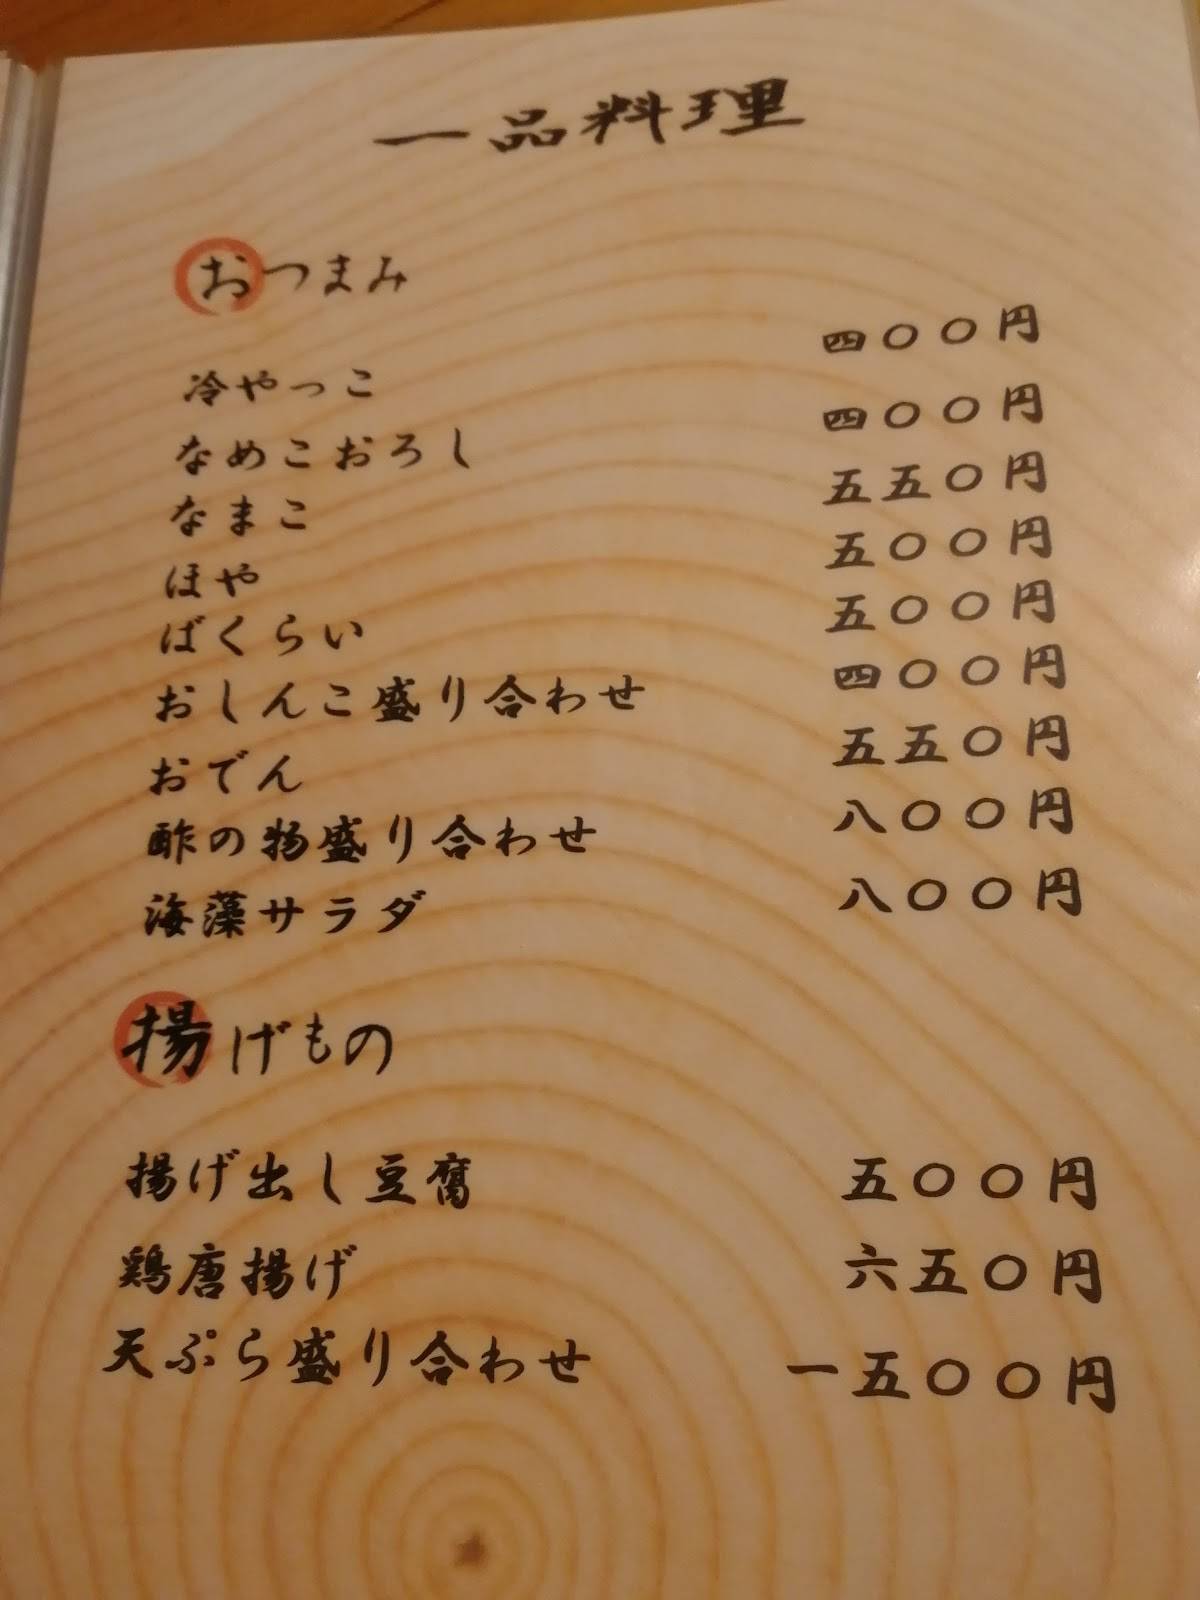 一品料理
おつまみ
冷やっこ 四〇〇円
なめこおろし 四〇〇円
なまこ 五五〇円
ほや 五〇〇円
ばくらい 五〇〇円
おしんこ盛り合わせ 四〇〇円
おでん 五五〇円
酢の物盛り合わせ 八〇〇円
海藻サラダ 八〇〇円
揚げもの
揚げ出し豆腐 五〇〇円
鶏唐揚げ 六五〇円
天ぷら盛り合わせ 一五〇〇円